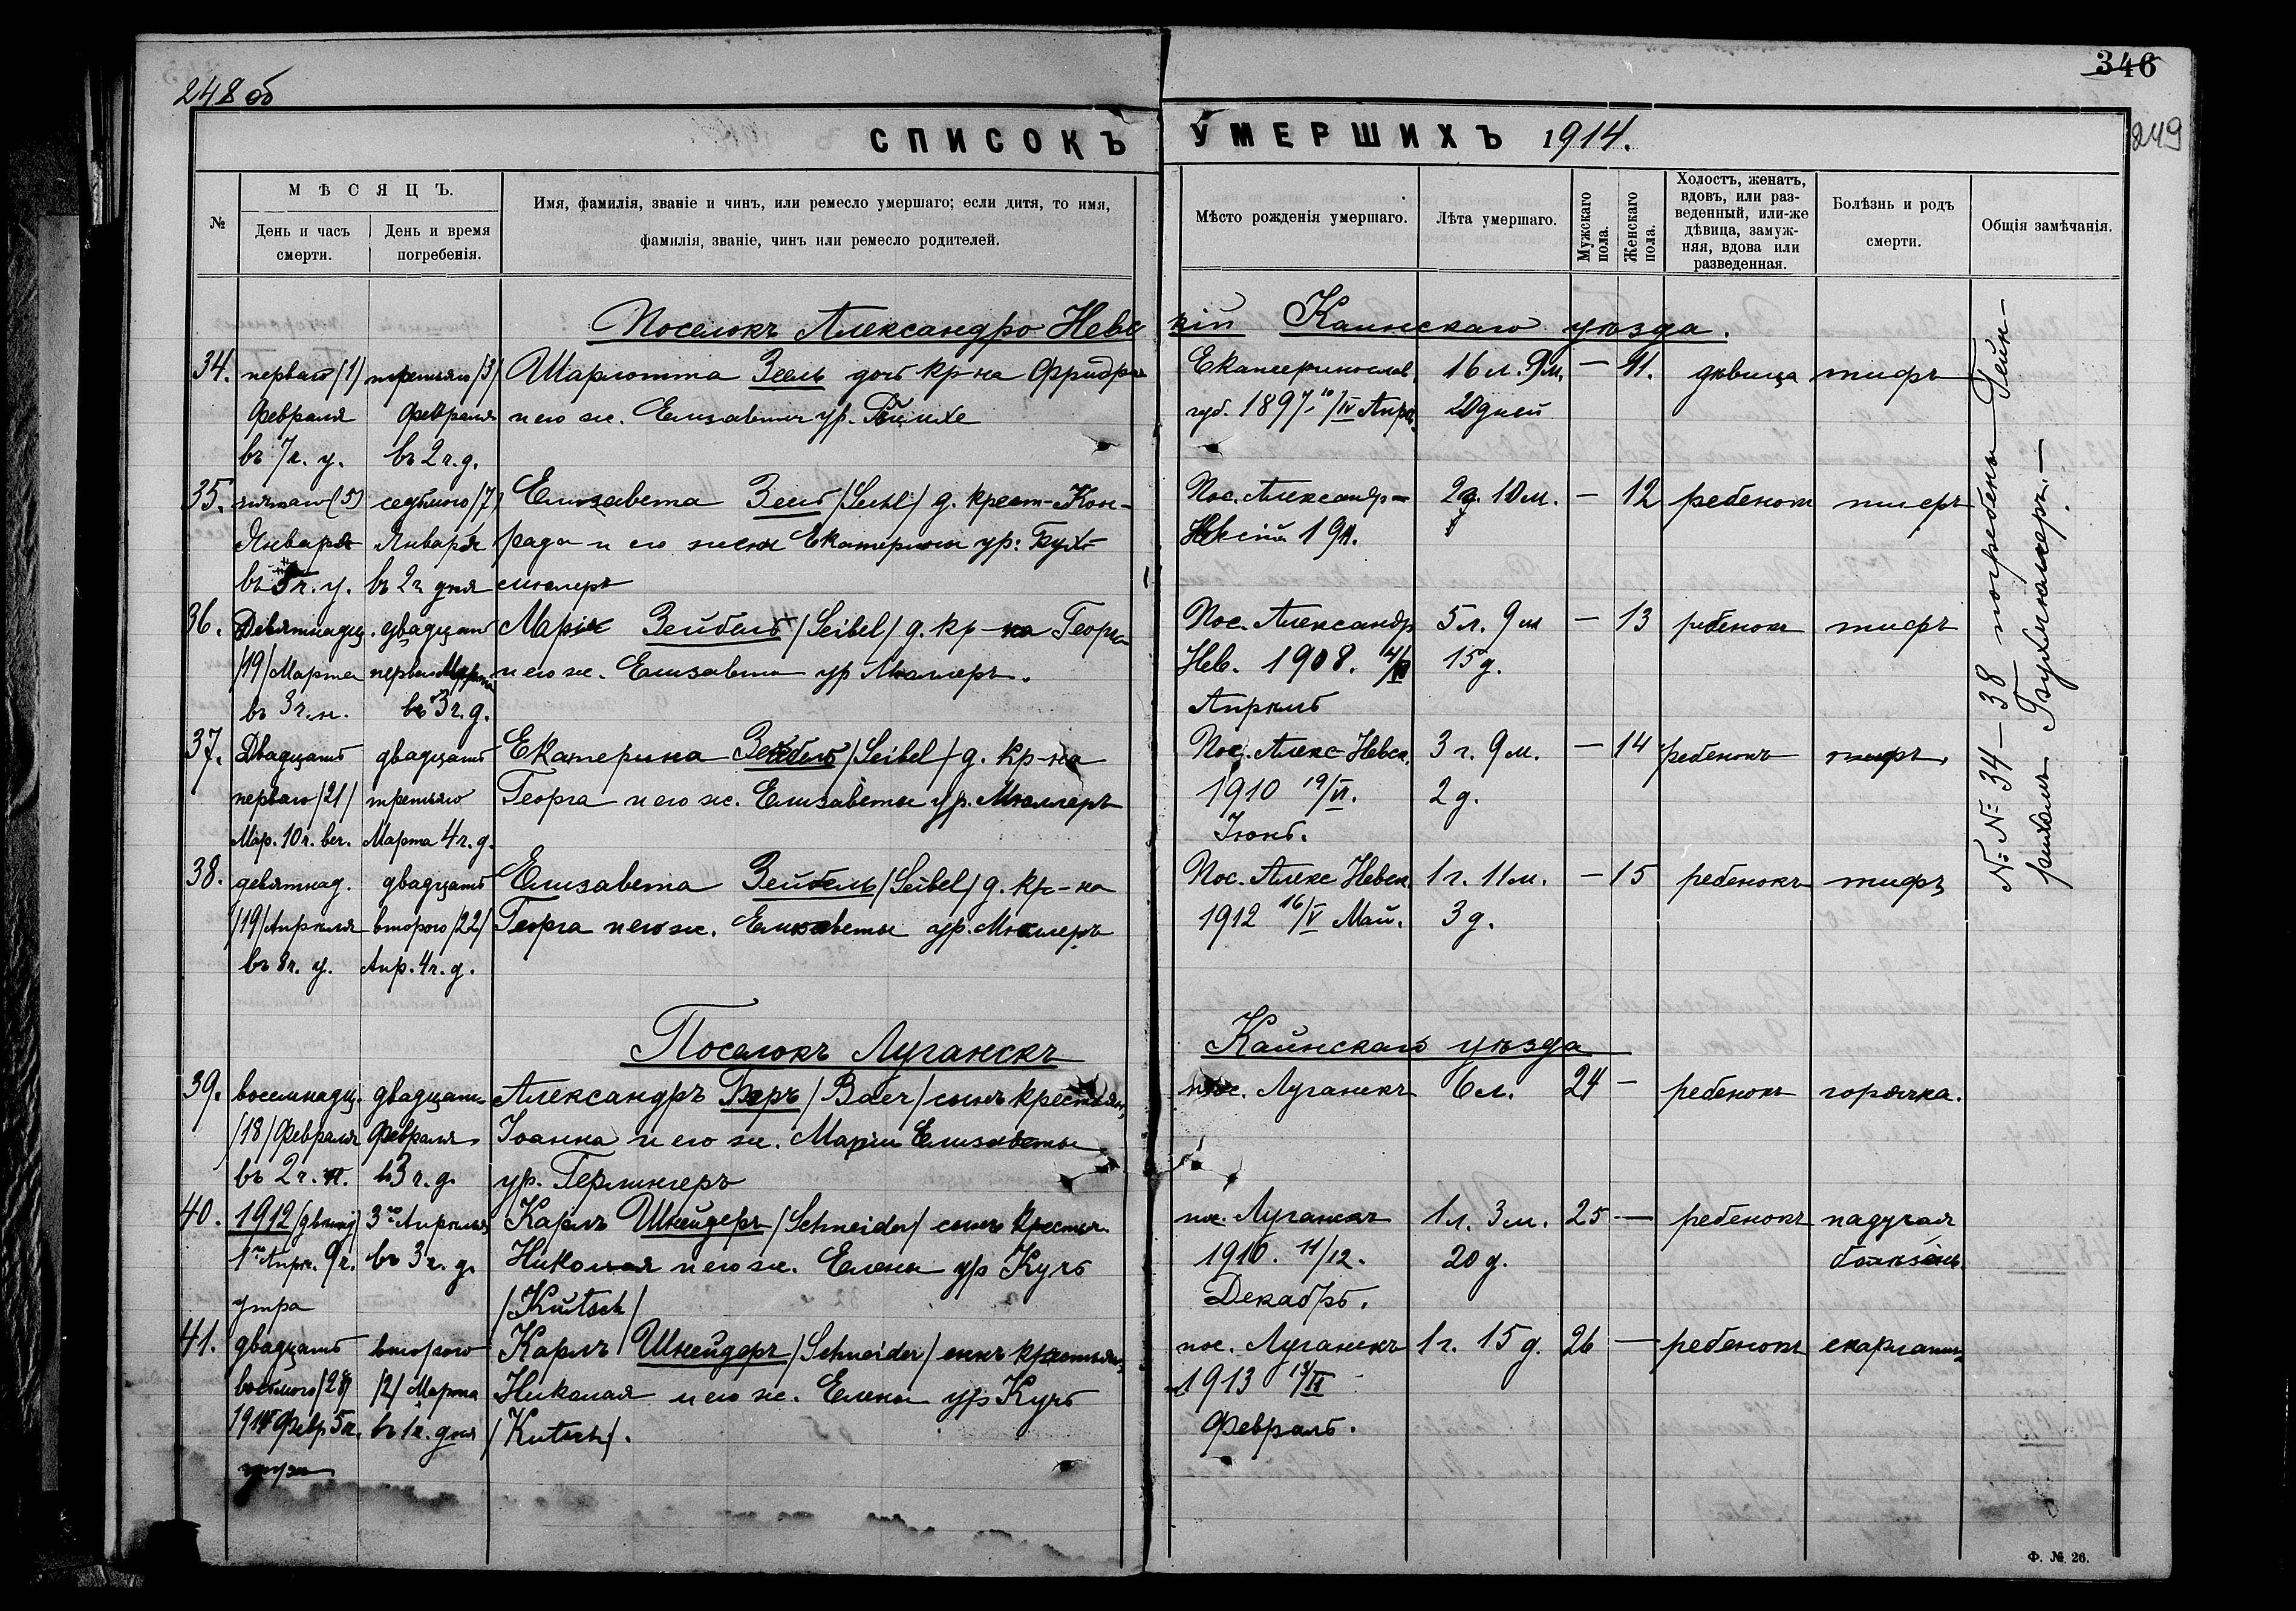 248 об
346
249
СПИСОКЪ УМЕРШИХЪ 1914.
№
МѢСЯЦЪ.
День и часъ смерти.
День и время погребенія.
Имя, фамилія, званіе и чинъ, или ремесло умершаго; если дитя, то имя,
фамилія, званіе, чинъ или ремесло родителей.
Мѣсто рожденія умершаго.
Лѣта умершаго.
Мужскаго пола.
Женскаго пола.
Холостъ, женатъ,
вдовъ, или раз-
веденный, или-же
дѣвица, замуж-
няя, вдова или
разведенная.
Болѣзнь и родъ
смерти.
Общія замѣчанія.
Поселокъ Александро Невскій Каинскаго уѣзда.
34. перваго /1/ третьяго /3/ Шарлотта Зеель дочь кр-на Фридриха Екатеринослав. 16 л. 9 м. — 11. дѣвица тифъ
Февраля Февраля и его ж. Елизаветы ур. губ. 1897 10/IV Апр. 20 дней
въ 7 ч. у. въ 2 ч. д.
35. пятаго (5) седьмого /7/ Елизавета Зеель /Seehl/ д. крест. Кон- Пос. Александр- 2 г. 10 м. — 12 ребенокъ тифъ
Января Января рада и его жены Екатерины ур: Бухъ- Невскій 1911.
въ 5 ч. у. въ 2 ч дня мюлеръ
36. Девятнадц. двадцать Марія Зейбель /Seibel/ д. кр-на Георга Пос. Александр 5 л. 9 м — 13 ребенокъ тифъ
/19/ Марта перваго Марта и его ж. Елизаветы ур Мюллеръ. Нев. 1908. 15 д.
въ 3 ч. н. въ 3 ч. д. Апрѣль
37. Двадцать двадцать Екатерина Зейбель /Seibel/ д. кр-на Пос. Алекс-Невск. 3 г. 9 м. — 14 ребенокъ тифъ.
перваго /21/ третьяго Георга и его ж. Елизаветы ур. Мюллеръ 1910 19/VI. 2 д.
Мар. 10 ч. веч. Марта 4 ч. д. Іюнь.
38. девятнад. двадцать Елизавета Зейбель /Seibel/ д. кр-на Пос. Алекс Невск. 1 г. 11 м. — 15 ребенокъ тифъ
/19/ Апрѣля второго /22/ Георга и его ж. Елизаветы ур. Мюллеръ 1912 16/V Май. 3 д.
въ 8 ч. у. Апр. 4 ч. д.
№№ 34 — 38 погребены Гейн-
рихомъ Бухмюллеръ. —
Поселокъ Луганскъ Каинскаго уѣзда
39. восемнадц. двадцать Александръ Бэръ /Baer/ сынъ крестьян. пос. Луганскъ 6 л. 24 — ребенокъ горячка.
/18/ Февраля Февраля Іоанна и его ж. Маріи Елизаветы
въ 2 ч. н. в 3 ч. д. ур. Герлингеръ
40. 1912 3го Апрѣля Карлъ Шнейдеръ /Schneider/ сынъ крестьн. пос. Луганскъ 1 л. 3 м. 25 — ребенокъ падучая
1го Апрѣ. 9 ч. въ 3 ч. д. Николая и его ж. Елены ур Кучъ 1910. 11/12. 20 д. болѣзнь.
утра /Kutsch/ Декабрь.
41. двадцать второго Карлъ Шнейдеръ /Schneider/ сынъ крестьян. пос. Луганскъ 1 г. 15 д. 26 — ребенокъ скарлатина
восьмого /28/ /2/ Марта Николая и его ж. Елены ур Кучъ 1913 13/II
1914 Февр 5 ч. въ 1 ч. дня /Kutsch/. Февраль.
утра
Ф. № 26.